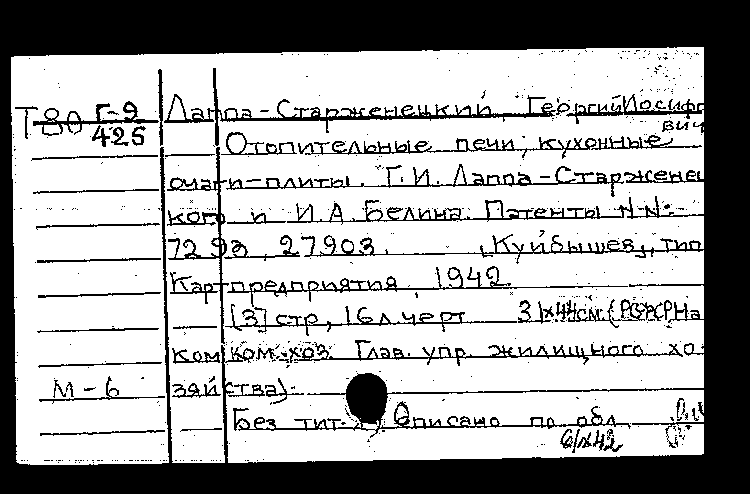 Т80 Г-9 Лаппа-Старженецкий, ГеоргийИосифо
425 вич
Отопительные печи, кухонные
очаги-плиты. Г.И. Лаппа-Старженец
кого и И.А. Белина. Патенты N-N:-
7293, 27903. "Куйбышев", тип.
Картпредприятия, 1942
[3] стр, 16 л. черт 31х44 см. (РСФСР На
ком ком. хоз. Глав. упр. жилищного хо-
М-6 зяйства).
Без тит. л. Описано по обл.
6/х 42